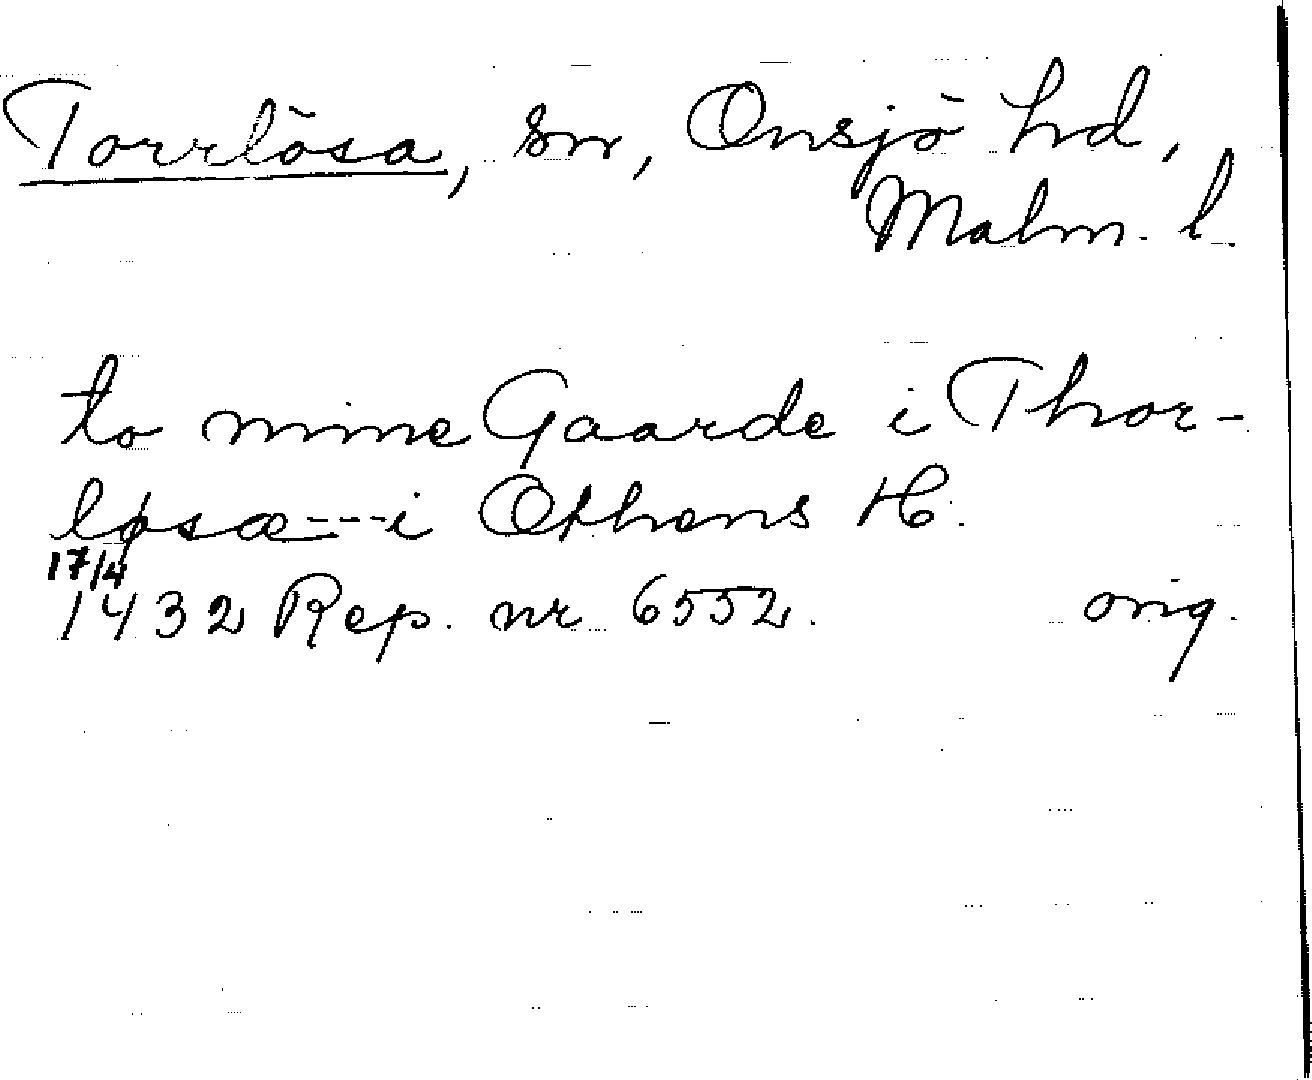 Torrlösa, sn, Onsjö hd,
Malm. l.
to mine Gaarde i Thor-
løsæ---i Othens H.
17/4
1432 Rep. nr 6552. orig.